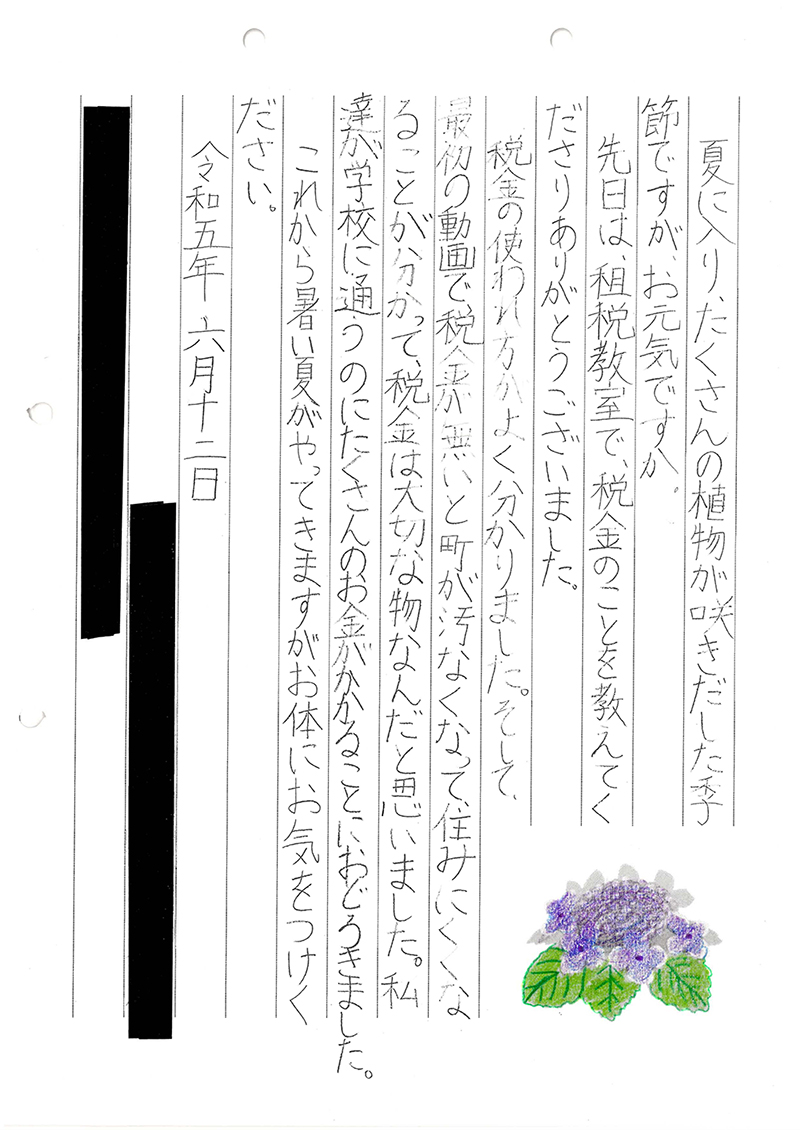 夏に入り、たくさんの植物が咲きだした季
節ですが、お元気ですか。
先日は、租税教室で、税金のことを教えてく
ださりありがとうございました。
税金の使われ方がよく分かりました。そして、
最初の動画で、税金が無いと町が汚なくなって、住みにくくな
ることが分かって、税金は大切な物なんだと思いました。私
達が学校に通うのにたくさんのお金がかかることにおどろきました。
これから暑い夏がやってきますがお体にお気をつけく
ださい。
令和五年六月十二日